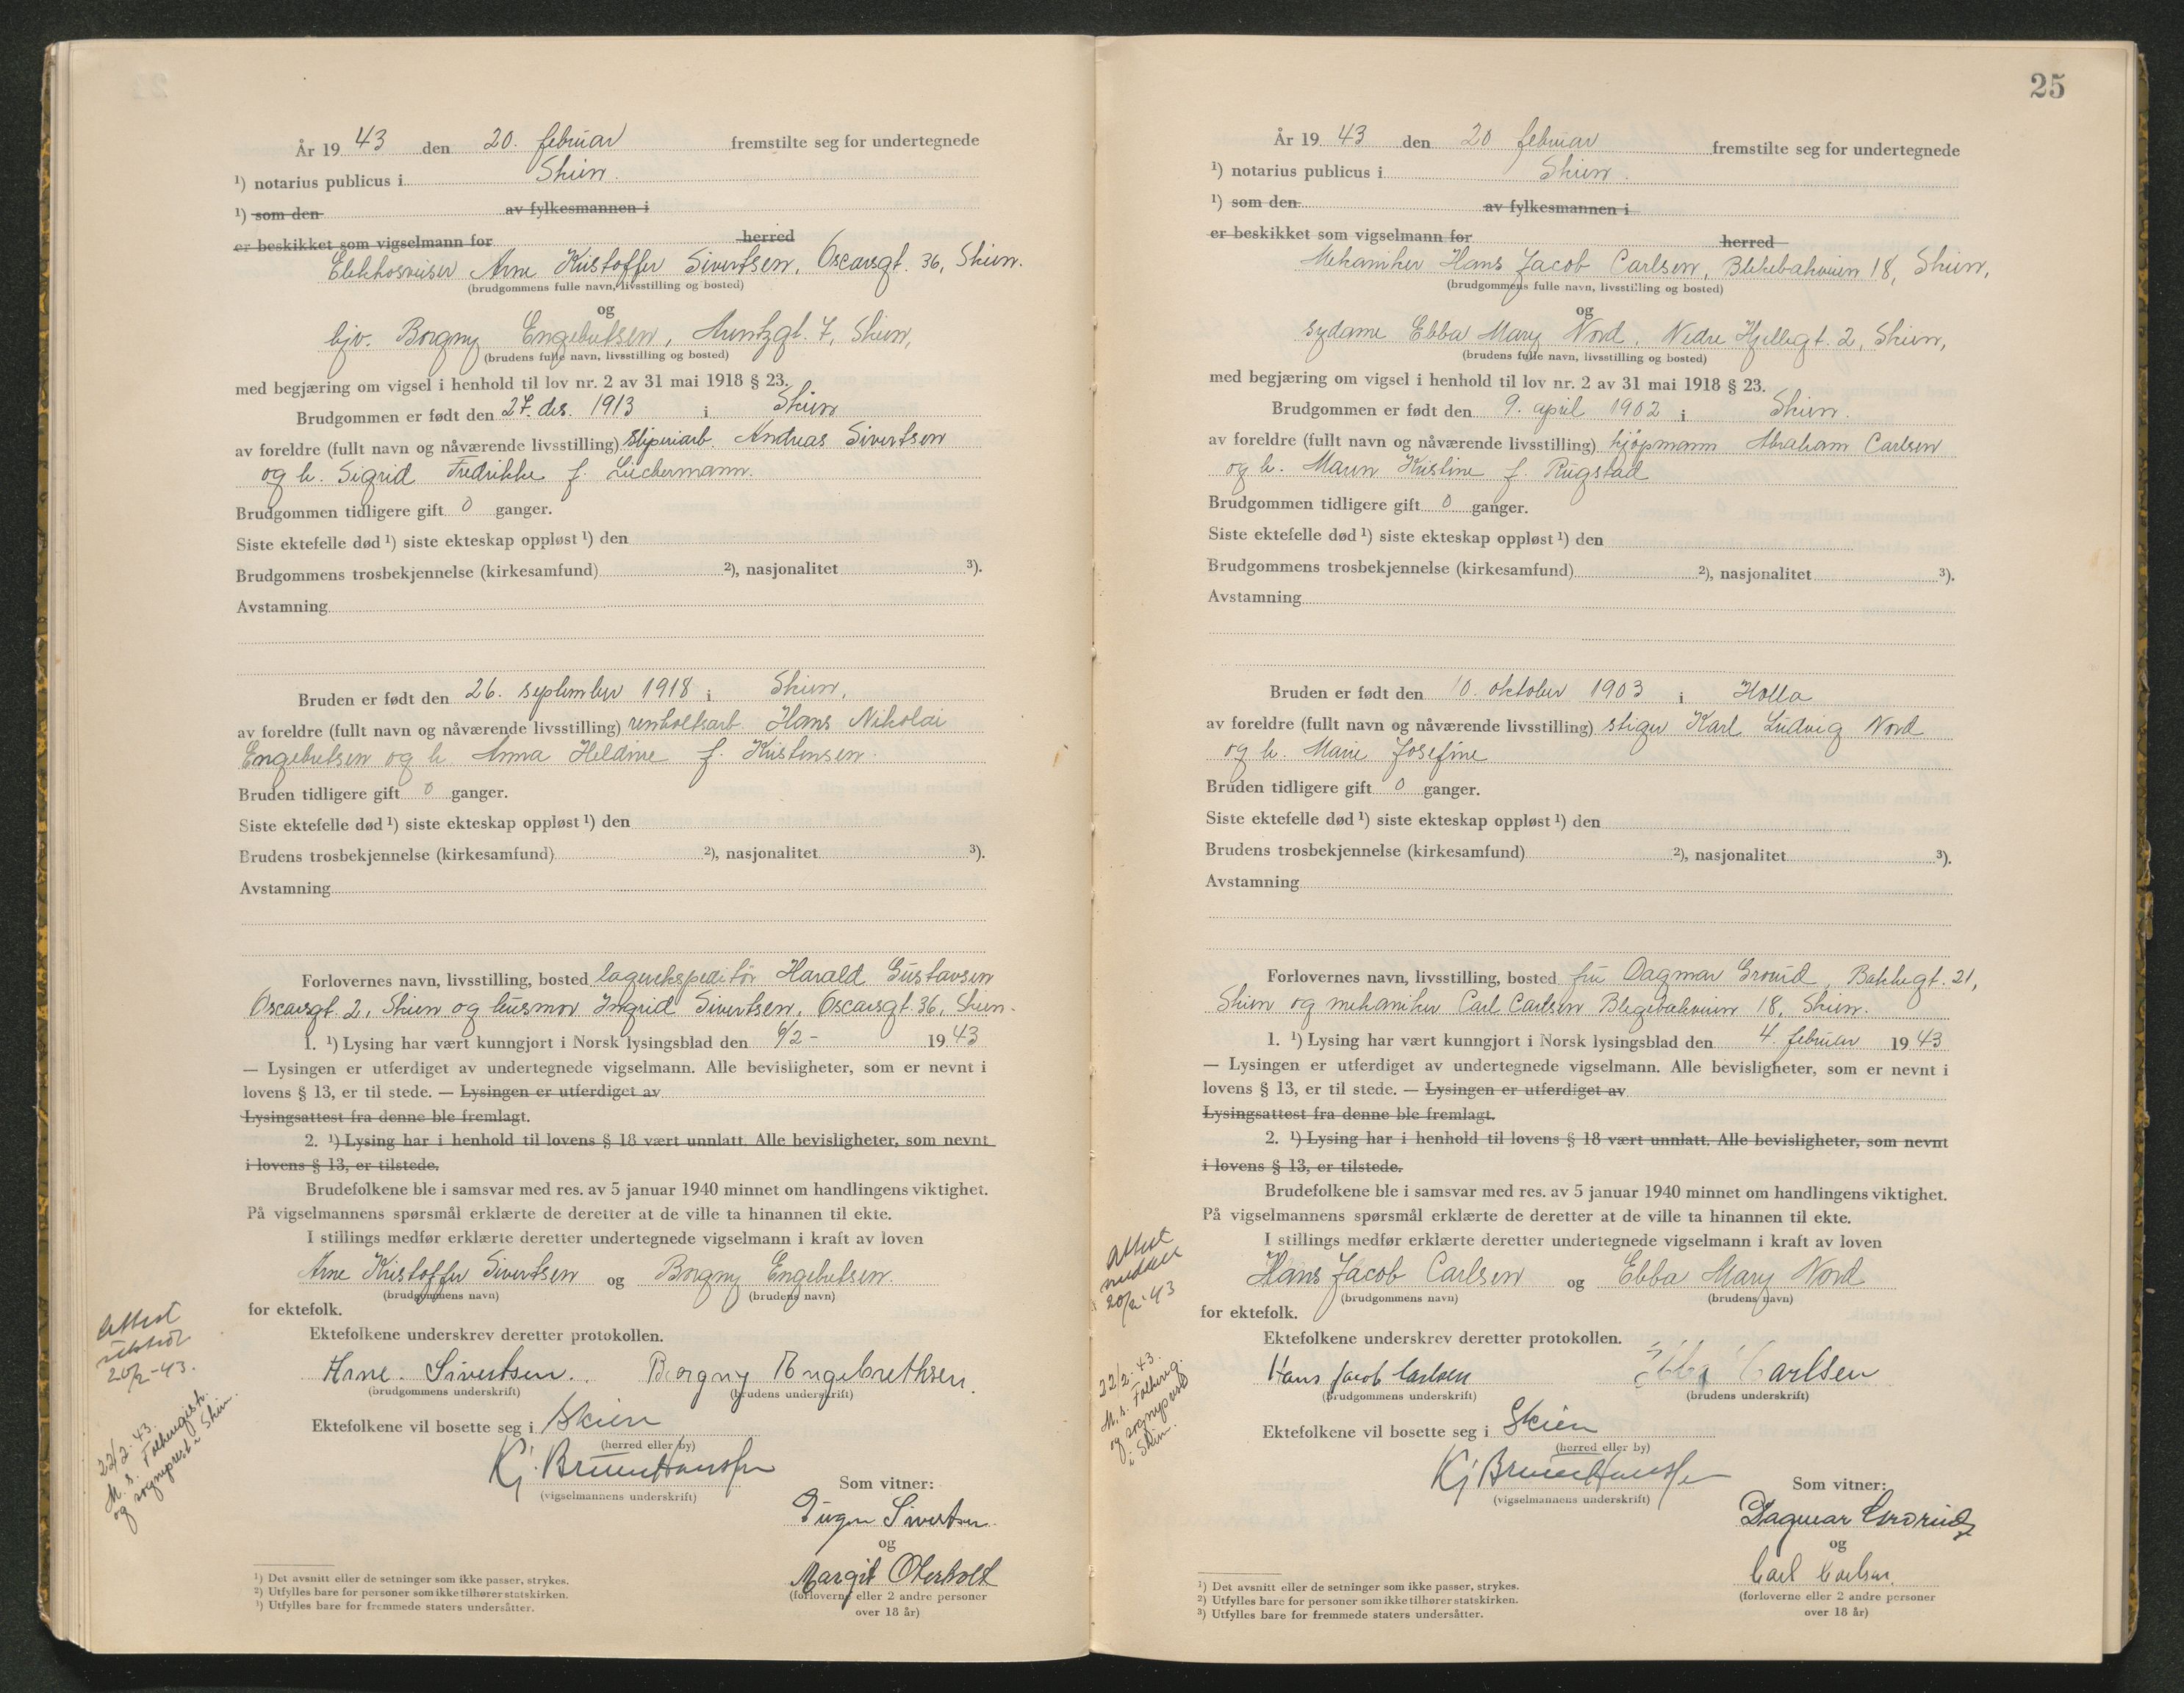 År 19 43 den 20. februar fremstilte seg for undertegnede
¹) notarius publicus i Skien.
¹) som den av fylkesmannen i
er beskikket som vigselmann for herred
Arne Kristoffer Sivertsen, Oscarsgt. 36, Skien.
(brudgommens fulle navn, livsstilling og bosted)
og
hjv. Borgny Engebretsen, Muntzgt. 7, Skien,
(brudens fulle navn, livsstilling og bosted)
med begjæring om vigsel i henhold til lov nr. 2 av 31 mai 1918 § 23.
Brudgommen er født den 27. des. 1913 i Skien
av foreldre (fullt navn og nåværende livsstilling) sliperiarb. Andreas Sivertsen
og h. Sigrid Fredrikke f. Lückermann.
Brudgommen tidligere gift 0 ganger.
Siste ektefelle død ¹) siste ekteskap oppløst ¹) den
Brudgommens trosbekjennelse (kirkesamfund) ²), nasjonalitet ³).
Avstamning
Bruden er født den 26. september 1918 i Skien,
av foreldre (fullt navn og nåværende livsstilling) renholdsarb. Hans Nikolai
Engebretsen og h. Anna Heldine f. Kristensen.
Bruden tidligere gift 0 ganger.
Siste ektefelle død ¹) siste ekteskap oppløst ¹) den
Brudens trosbekjennelse (kirkesamfund) ²), nasjonalitet ³).
Avstamning
Forlovernes navn, livsstilling, bosted lagerekspeditør Harald Gustavsen
Oscarsgt. 2, Skien og husmor Ingrid Sivertsen, Oscarsgt. 36, Skien.
1. ¹) Lysing har vært kunngjort i Norsk lysingsblad den 6/2- 19 43
— Lysingen er utferdiget av undertegnede vigselmann. Alle bevisligheter, som er nevnt i
lovens § 13, er til stede. — Lysingen er utferdiget av
Lysingsattest fra denne ble fremlagt.
2. ¹) Lysing har i henhold til lovens § 18 vært unnlatt. Alle bevisligheter, som nevnt
i lovens § 13, er tilstede.
Brudefolkene ble i samsvar med res. av 5 januar 1940 minnet om handlingens viktighet.
På vigselmannens spørsmål erklærte de deretter at de ville ta hinannen til ekte.
I stillings medfør erklærte deretter undertegnede vigselmann i kraft av loven
Arne Kristoffer Sivertsen og Borgny Engebretsen.
(brudgommens navn) (brudens navn)
for ektefolk.
Ektefolkene underskrev deretter protokollen.
Arne Sivertsen. Borgny Engebrethsen.
(brudgommens underskrift) (brudens underskrift)
Ektefolkene vil bosette seg i Skien
(herred eller by)
Kj. Bruun Hanssen
(vigselmannens underskrift)
Som vitner:
Sivertsen
og
Margit Oterholt
(forloverne eller 2 andre personer
over 18 år)
Attest
utskr.
20/2-43.
22/2-43
M. s. Folkeregistr.
og sogneprest i Skien.
¹) Det avsnitt eller de setninger som ikke passer, strykes.
²) Utfylles bare for personer som ikke tilhører statskirken.
³) Utfylles bare for fremmede staters undersåtter.
25
År 19 43 den 20 februar fremstilte seg for undertegnede
¹) notarius publicus i Skien.
¹) som den av fylkesmannen i
er beskikket som vigselmann for herred
Mekaniker Hans Jacob Carlsen, Blekebakveien 18, Skien,
(brudgommens fulle navn, livsstilling og bosted)
og
sydame Ebba Mary Nord, Nedre Hjellegt. 2, Skien,
(brudens fulle navn, livsstilling og bosted)
med begjæring om vigsel i henhold til lov nr. 2 av 31 mai 1918 § 23.
Brudgommen er født den 9. april 1902 i Skien.
av foreldre (fullt navn og nåværende livsstilling) kjøpmann Abraham Carlsen
og h. Maren Kristine f. Rugstad
Brudgommen tidligere gift 0 ganger.
Siste ektefelle død ¹) siste ekteskap oppløst ¹) den
Brudgommens trosbekjennelse (kirkesamfund) ²), nasjonalitet ³).
Avstamning
Bruden er født den 10. oktober 1903 i Holla
av foreldre (fullt navn og nåværende livsstilling) stiger Karl Ludvig Nord
og h. Marie Josefine
Bruden tidligere gift 0 ganger.
Siste ektefelle død ¹) siste ekteskap oppløst ¹) den
Brudens trosbekjennelse (kirkesamfund) ²), nasjonalitet ³).
Avstamning
Forlovernes navn, livsstilling, bosted fru Dagmar Grorud, Bakkegt. 21,
Skien og mekaniker Carl Carlsen Blegebakveien 18, Skien.
1. ¹) Lysing har vært kunngjort i Norsk lysingsblad den 4. februar 19 43
— Lysingen er utferdiget av undertegnede vigselmann. Alle bevisligheter, som er nevnt i
lovens § 13, er til stede. — Lysingen er utferdiget av
Lysingsattest fra denne ble fremlagt.
2. ¹) Lysing har i henhold til lovens § 18 vært unnlatt. Alle bevisligheter, som nevnt
i lovens § 13, er tilstede.
Brudefolkene ble i samsvar med res. av 5 januar 1940 minnet om handlingens viktighet.
På vigselmannens spørsmål erklærte de deretter at de ville ta hinannen til ekte.
I stillings medfør erklærte deretter undertegnede vigselmann i kraft av loven
Hans Jacob Carlsen og Ebba Mary Nord
(brudgommens navn) (brudens navn)
for ektefolk.
Ektefolkene underskrev deretter protokollen.
Hans Jacob Carlsen Ebba Carlsen
(brudgommens underskrift) (brudens underskrift)
Ektefolkene vil bosette seg i Skien
(herred eller by)
Kj Bruun Hanssen
(vigselmannens underskrift)
Som vitner:
Dagmar Grorud
og
Carl Carlsen
(forloverne eller 2 andre personer
over 18 år)
Attest
meddelt
20/2-43
22/2-43.
M. s. Folkereg.
og sogneprest
i Skien.
¹) Det avsnitt eller de setninger som ikke passer, strykes.
²) Utfylles bare for personer som ikke tilhører statskirken.
³) Utfylles bare for fremmede staters undersåtter.